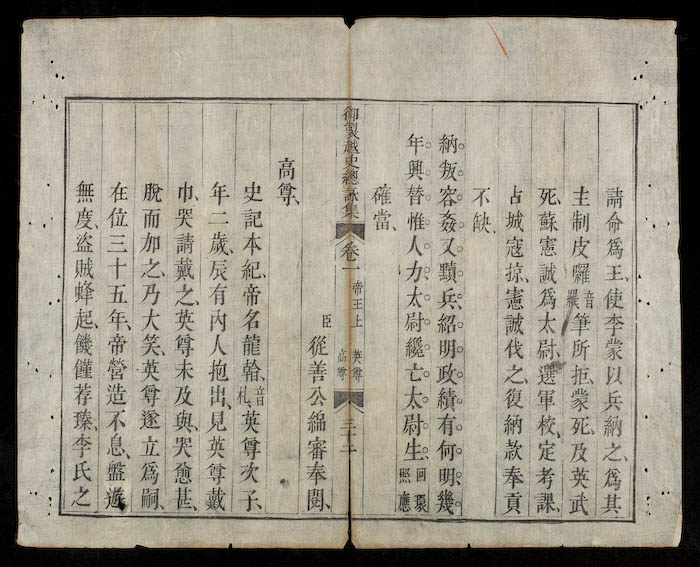 請命爲王、使李蒙以兵納之、爲其
主制皮囉音羅筆所拒、蒙死、及英武
死、蘇憲誠爲太尉、選軍校、定考課、
占城寇掠、憲誠伐之、復納款奉貢
不缺、
納叛容姦又黷兵紹明政績有何明幾
年興替惟人力太尉纔亡太尉生回環照應
確當、
臣從善公綿審奉閱、
御製越史總詠集
卷一
帝王上
英尊
高尊
三十二
高尊、
史記本紀、帝名龍𣉙、音札、英尊次子、
年二歲、辰有內人抱出、見英尊戴
巾、哭請戴之、英尊未及與、哭愈甚、
脫而加之、乃大笑、英尊遂立爲嗣、
在位三十五年、帝營造不息、盤遊
無度、盜賊蜂起、饑饉荐臻、李氏之